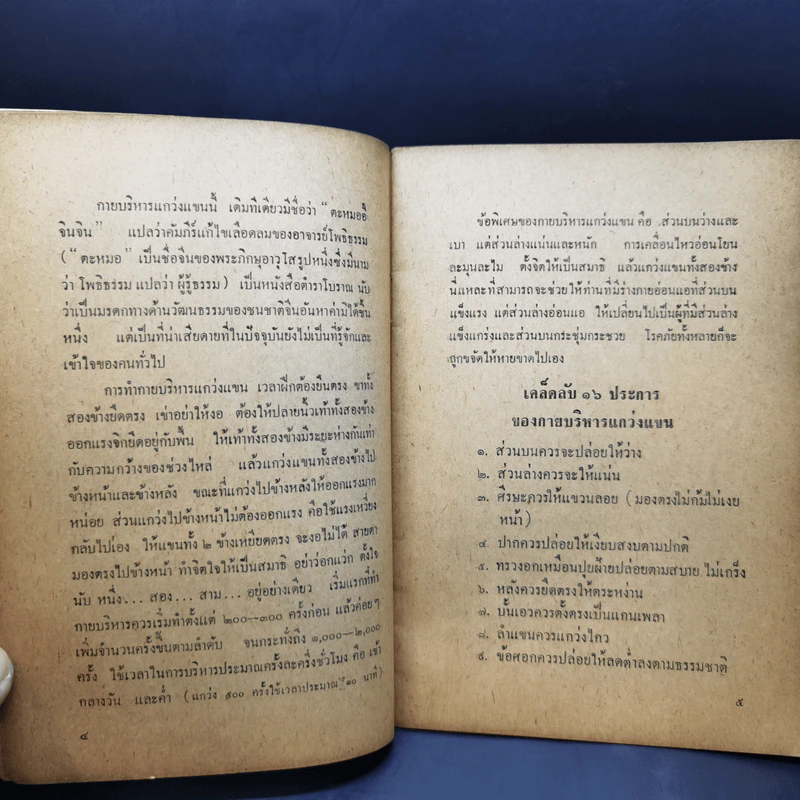 กายบริหารแกว่งแขนนี้ เดิมทีเดียวมีชื่อว่า “ตะหมออี้
จินจิน” แปลว่าคัมภีร์แก้ไขเลือดลมของอาจารย์โพธิธรรม
(“ตะหมอ” เป็นชื่อจีนของพระภิกษุอาวุโสรูปหนึ่งซึ่งมีนาม
ว่า โพธิธรรม แปลว่า ผู้รู้ธรรม) เป็นหนังสือตำราโบราณ นับ
ว่าเป็นมรดกทางด้านวัฒนธรรมของชนชาติจีนอันหาค่ามิได้ชิ้น
หนึ่ง แต่เป็นที่น่าเสียดายที่ในปัจจุบันยังไม่เป็นที่รู้จักและ
เข้าใจของคนทั่วไป
การทำกายบริหารแกว่งแขน เวลาฝึกต้องยืนตรง ขาทั้ง
สองข้างยืดตรง เข่าอย่าให้งอ ต้องให้ปลายนิ้วเท้าทั้งสองข้าง
ออกแรงจิกยึดอยู่กับพื้น ให้เท้าทั้งสองข้างมีระยะห่างกันเท่า
กับความกว้างของช่วงไหล่ แล้วแกว่งแขนทั้งสองข้างไป
ข้างหน้าและข้างหลัง ขณะที่แกว่งไปข้างหลังให้ออกแรงมาก
หน่อย ส่วนแกว่งไปข้างหน้าไม่ต้องออกแรง คือใช้แรงเหวี่ยง
กลับไปเอง ให้แขนทั้ง ๒ ข้างเหยียดตรง จะงอไม่ได้ สายตา
มองตรงไปข้างหน้า ทำจิตใจให้เป็นสมาธิ อย่าว่อกแว่ก ตั้งใจ
นับ หนึ่ง... สอง... สาม... อยู่อย่างเดียว เริ่มแรกที่ทำ
กายบริหารควรเริ่มทำตั้งแต่ ๒๐๐–๓๐๐ ครั้งก่อน แล้วค่อยๆ
เพิ่มจำนวนครั้งขึ้นตามลำดับ จนกระทั่งถึง ๑,๐๐๐–๒,๐๐๐
ครั้ง ใช้เวลาในการบริหารประมาณครั้งละครึ่งชั่วโมง คือ เช้า
กลางวัน และค่ำ (แกว่ง ๕๐๐ ครั้งใช้เวลาประมาณ ๑๐ นาที)
๔
ข้อพิเศษของกายบริหารแกว่งแขน คือ ส่วนบนว่างและ
เบา แต่ส่วนล่างแน่นและหนัก การเคลื่อนไหวอ่อนโยน
ละมุนละไม ตั้งจิตให้เป็นสมาธิ แล้วแกว่งแขนทั้งสองข้าง
นี่แหละที่สามารถจะช่วยให้ท่านที่มีร่างกายอ่อนแอที่ส่วนบน
แข็งแรง แต่ส่วนล่างอ่อนแอ ให้เปลี่ยนไปเป็นผู้ที่มีส่วนล่าง
แข็งแกร่งและส่วนบนกระชุ่มกระชวย โรคภัยทั้งหลายก็จะ
ถูกขจัดให้หายขาดไปเอง
เคล็ดลับ ๑๖ ประการ
ของกายบริหารแกว่งแขน
๑. ส่วนบนควรจะปล่อยให้ว่าง
๒. ส่วนล่างควรจะให้แน่น
๓. ศีรษะควรให้แขวนลอย (มองตรงไม่ก้มไม่เงย
หน้า)
๔. ปากควรปล่อยให้เงียบสงบตามปกติ
๕. ทรวงอกเหมือนปุยฝ้ายปล่อยตามสบาย ไม่เกร็ง
๖. หลังควรยืดตรงให้ตระหง่าน
๗. บั้นเอวควรตั้งตรงเป็นแกนเพลา
๘. ลำแขนควรแกว่งไกว
๙. ข้อศอกควรปล่อยให้ลดต่ำลงตามธรรมชาติ
๕